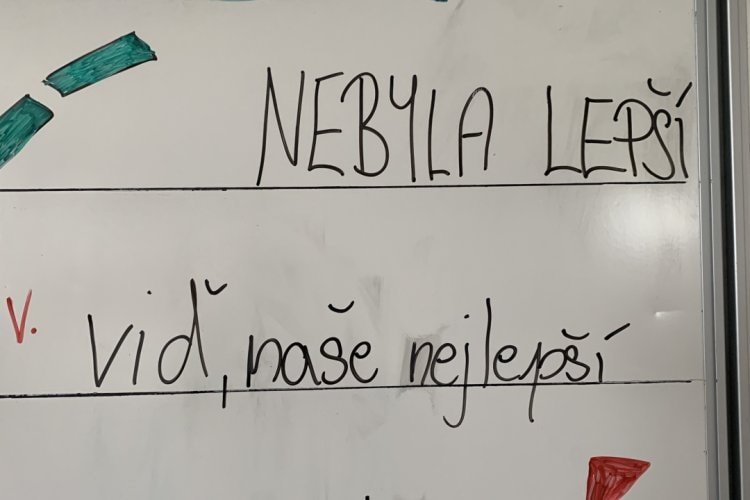 NEBYLA LEPŠÍ
V. viď, naše nejlepší